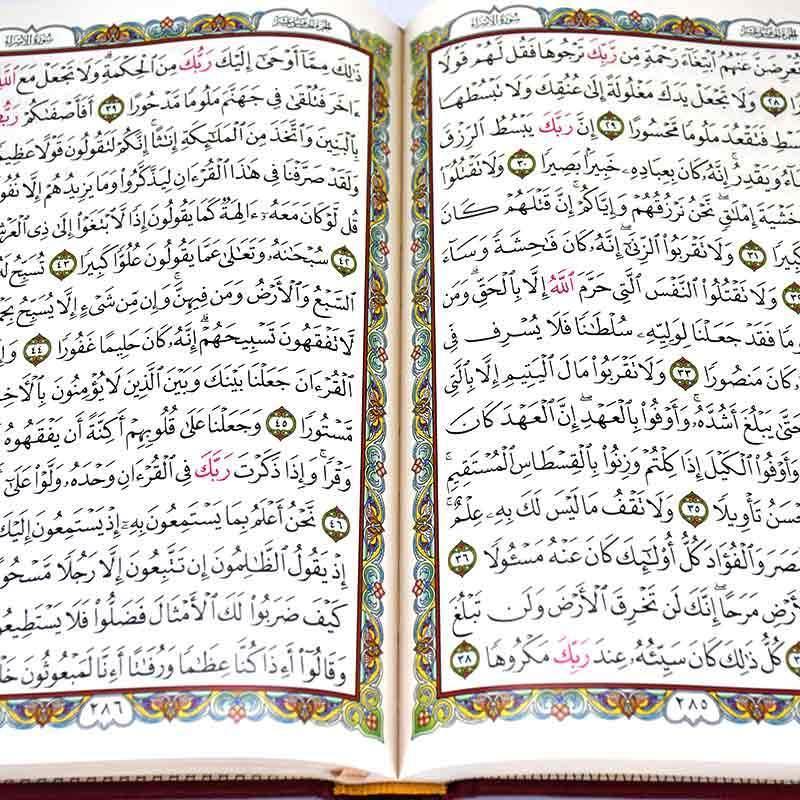 سورة الإسراء
تُعْرِضَنَّ عَنْهُمُ ٱبْتِغَآءَ رَحْمَةٍ مِّن رَّبِّكَ تَرْجُوهَا فَقُل لَّهُمْ قَوْلًا
٢٨ وَلَا تَجْعَلْ يَدَكَ مَغْلُولَةً إِلَىٰ عُنُقِكَ وَلَا تَبْسُطْهَا
فَتَقْعُدَ مَلُومًا مَّحْسُورًا ٢٩ إِنَّ رَبَّكَ يَبْسُطُ ٱلرِّزْقَ
وَيَقْدِرُ ۚ إِنَّهُۥ كَانَ بِعِبَادِهِۦ خَبِيرًۢا بَصِيرًا ٣٠ وَلَا تَقْتُلُوٓا۟
خَشْيَةَ إِمْلَـٰقٍ ۖ نَّحْنُ نَرْزُقُهُمْ وَإِيَّاكُمْ ۚ إِنَّ قَتْلَهُمْ كَانَ
٣١ وَلَا تَقْرَبُوا۟ ٱلزِّنَىٰٓ ۖ إِنَّهُۥ كَانَ فَـٰحِشَةً وَسَآءَ
وَلَا تَقْتُلُوا۟ ٱلنَّفْسَ ٱلَّتِى حَرَّمَ ٱللَّهُ إِلَّا بِٱلْحَقِّ ۗ وَمَن
فَقَدْ جَعَلْنَا لِوَلِيِّهِۦ سُلْطَـٰنًا فَلَا يُسْرِف فِّى
كَانَ مَنصُورًا ٣٣ وَلَا تَقْرَبُوا۟ مَالَ ٱلْيَتِيمِ إِلَّا بِٱلَّتِى
حَتَّىٰ يَبْلُغَ أَشُدَّهُۥ ۚ وَأَوْفُوا۟ بِٱلْعَهْدِ ۖ إِنَّ ٱلْعَهْدَ كَانَ
وَأَوْفُوا۟ ٱلْكَيْلَ إِذَا كِلْتُمْ وَزِنُوا۟ بِٱلْقِسْطَاسِ ٱلْمُسْتَقِيمِ ۚ
تَأْوِيلًا ٣٥ وَلَا تَقْفُ مَا لَيْسَ لَكَ بِهِۦ عِلْمٌ ۚ
وَٱلْفُؤَادَ كُلُّ أُو۟لَـٰٓئِكَ كَانَ عَنْهُ مَسْـُٔولًا ٣٦
مَرَحًا ۖ إِنَّكَ لَن تَخْرِقَ ٱلْأَرْضَ وَلَن تَبْلُغَ
كُلُّ ذَٰلِكَ كَانَ سَيِّئُهُۥ عِندَ رَبِّكَ مَكْرُوهًا ٣٨
٢٨٥
سورة الإسراء
ذَٰلِكَ مِمَّآ أَوْحَىٰٓ إِلَيْكَ رَبُّكَ مِنَ ٱلْحِكْمَةِ ۗ وَلَا تَجْعَلْ مَعَ
ءَاخَرَ فَتُلْقَىٰ فِى جَهَنَّمَ مَلُومًا مَّدْحُورًا ٣٩ أَفَأَصْفَىٰكُمْ
بِٱلْبَنِينَ وَٱتَّخَذَ مِنَ ٱلْمَلَـٰٓئِكَةِ إِنَـٰثًا ۚ إِنَّكُمْ لَتَقُولُونَ قَوْلًا
وَلَقَدْ صَرَّفْنَا فِى هَـٰذَا ٱلْقُرْءَانِ لِيَذَّكَّرُوا۟ وَمَا يَزِيدُهُمْ إِلَّا
قُل لَّوْ كَانَ مَعَهُۥٓ ءَالِهَةٌ كَمَا يَقُولُونَ إِذًا لَّٱبْتَغَوْا۟ إِلَىٰ ذِى
٤٢ سُبْحَـٰنَهُۥ وَتَعَـٰلَىٰ عَمَّا يَقُولُونَ عُلُوًّا كَبِيرًا ٤٣ تُسَبِّحُ
ٱلسَّبْعُ وَٱلْأَرْضُ وَمَن فِيهِنَّ ۚ وَإِن مِّن شَىْءٍ إِلَّا يُسَبِّحُ
لَّا تَفْقَهُونَ تَسْبِيحَهُمْ ۗ إِنَّهُۥ كَانَ حَلِيمًا غَفُورًا ٤٤
ٱلْقُرْءَانَ جَعَلْنَا بَيْنَكَ وَبَيْنَ ٱلَّذِينَ لَا يُؤْمِنُونَ
مَّسْتُورًا ٤٥ وَجَعَلْنَا عَلَىٰ قُلُوبِهِمْ أَكِنَّةً أَن يَفْقَهُوهُ
وَقْرًا ۚ وَإِذَا ذَكَرْتَ رَبَّكَ فِى ٱلْقُرْءَانِ وَحْدَهُۥ وَلَّوْا۟ عَلَىٰٓ
٤٦ نَّحْنُ أَعْلَمُ بِمَا يَسْتَمِعُونَ بِهِۦٓ إِذْ يَسْتَمِعُونَ إِلَيْكَ
إِذْ يَقُولُ ٱلظَّـٰلِمُونَ إِن تَتَّبِعُونَ إِلَّا رَجُلًا
كَيْفَ ضَرَبُوا۟ لَكَ ٱلْأَمْثَالَ فَضَلُّوا۟ فَلَا
وَقَالُوٓا۟ أَءِذَا كُنَّا عِظَـٰمًا وَرُفَـٰتًا أَءِنَّا لَمَبْعُوثُونَ
٢٨٦